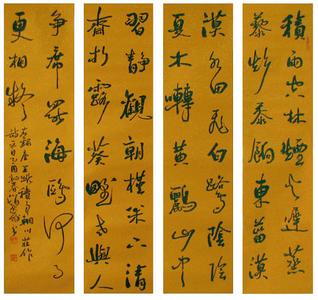 積雨空林煙火遲蒸
藜炊黍餉東菑漠
漠水田飛白鷺陰陰
夏木囀黃鸝山中
習靜觀朝槿松下清
齋折露葵野老與人
爭席罷海鷗何事
更相疑
王維積雨輞川莊作